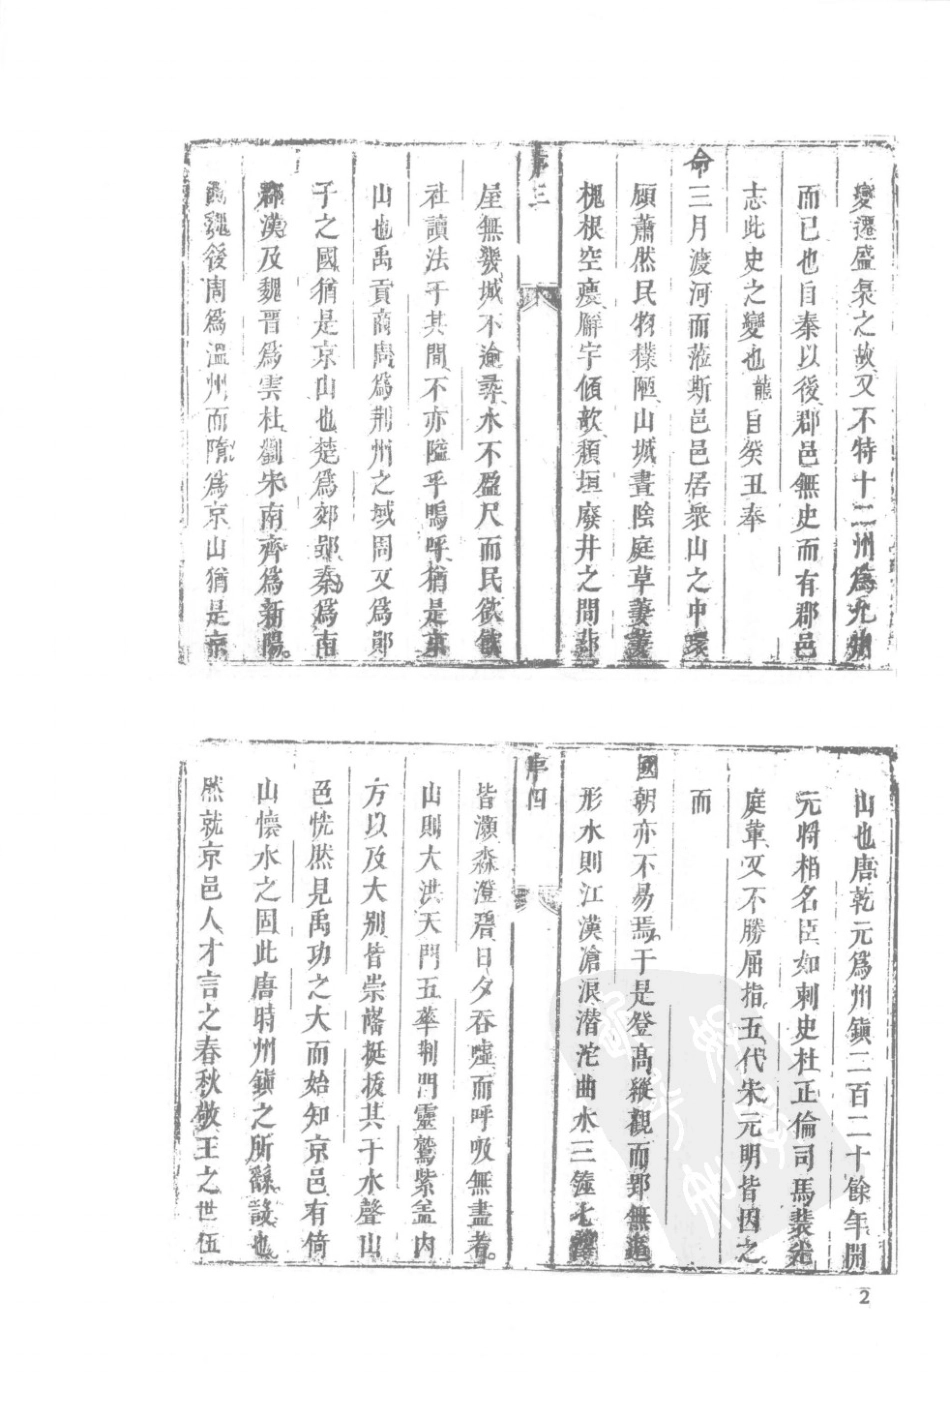 變遷盛衰之故又不特十二州為九
而已也自秦以後郡邑無史而有郡邑
志此史之變也龍自癸丑奉
命三月渡河而蒞斯邑邑居衆山之中環
顧蕭然民物樸陋山城晝陰庭草萋萋
槐根空瘻廨宇傾欹頹垣廢井之間
序三
屋無幾城不逾彝水不盈尺而民欲
社讀法于其間不亦隘乎嗚呼猶是京
山也禹貢商周爲荆州之域周又爲鄖
子之國猶是京山也楚爲郊郢秦爲南
郡漢及魏晋爲雲杜劉宋南齊爲新陽
西魏後周爲溫州而隋爲京山猶是京
山也唐乾元爲州鎭二百二十餘年開
元將相名臣如刺史杜正倫司馬裴
庭輩又不勝屈指五代宋元明皆因之
而
國朝亦不易焉于是登高縱觀而郢無遁
形水則江漢滄浪潜沱曲水三澨七澤
序四
皆灝淼澄碧日夕吞噓而呼吸無盡者
山則大洪天門五華荆門靈鷲紫盖内
方以及大别皆崇崿挺拔其于水聲山
色恍然見禹功之大而始知京邑有倚
山懷水之固此唐時州鎭之所繇設也
然就京邑人才言之春秋敬王之世伍
2